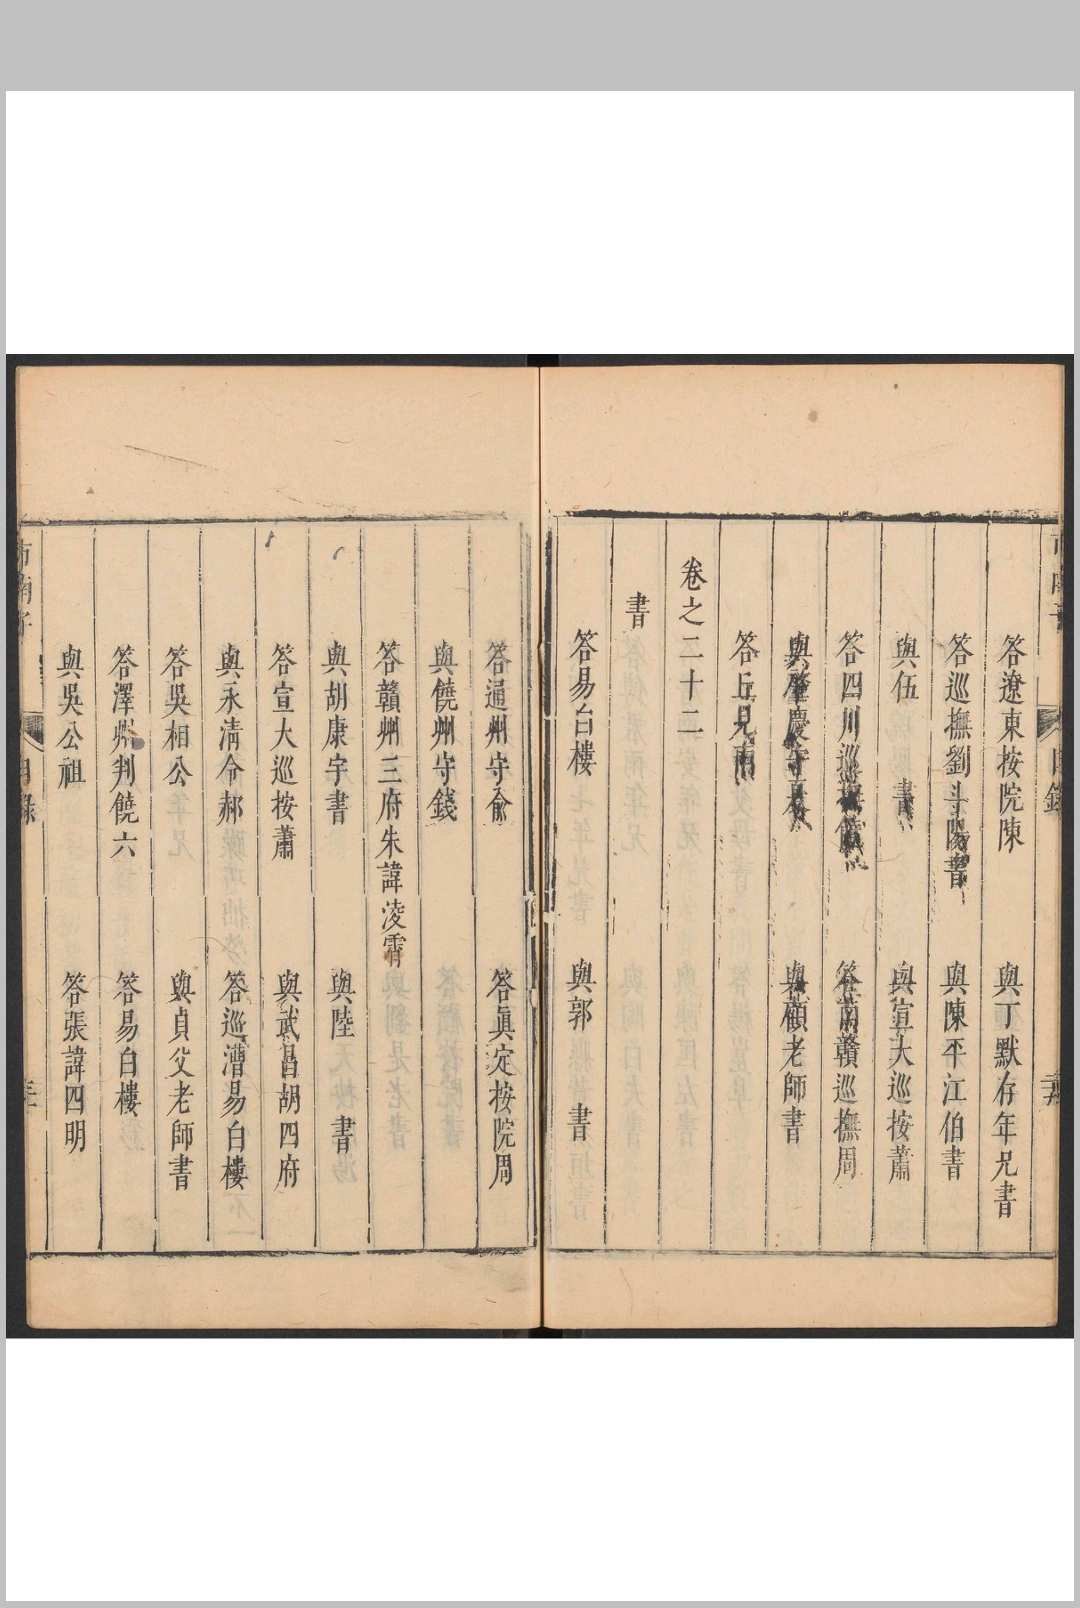 答遼東按院陳　與丁默存年兄書
答巡撫劉斗陽書　與陳平江伯書
與伍　書　與宣大巡按蕭
答四川巡撫　答南贛巡撫周
與肇慶守　與顧老師書
答丘見南
卷之二十二
書
答易白樓　與郭　書
答通州守俞　答眞定按院周
與饒州守錢
答贛州三府朱諱凌霄
與胡康宇書　與陸　書
答宣大巡按蕭　與武昌胡四府
與永清令郝　答巡漕易白樓
答吳相公　與貞父老師書
答澤州判饒六　答易白樓
與吳公祖　答張諱四明
市南子　目錄